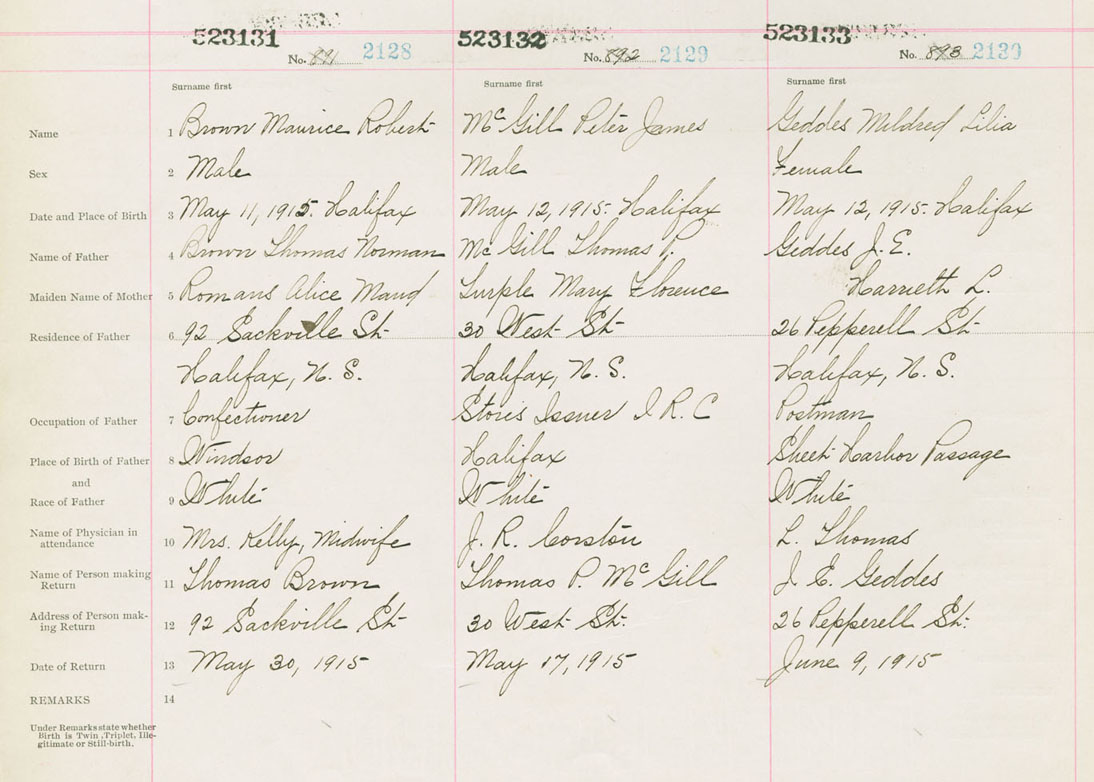 523131 523132 523133
No. 891 2128 No. 892 2129 No. 893 2130
Surname first Surname first Surname first
Name 1 Brown Maurice Robert McGill Peter James Geddes Mildred Lilia
Sex 2 Male Male Female
Date and Place of Birth 3 May 11, 1915. Halifax May 12, 1915. Halifax May 12, 1915. Halifax
Name of Father 4 Brown Thomas Norman McGill Thomas P. Geddes J. E.
Maiden Name of Mother 5 Romans Alice Maud Mary Florence Harrieth L.
Residence of Father 6 92 Sackville St 30 West St 26 Pepperell St
Halifax, N. S. Halifax, N. S. Halifax, N. S.
Occupation of Father 7 Confectioner Stores Issuer I. R. C Postman
Place of Birth of Father 8 Windsor Halifax Sheet Harbor Passage
and
Race of Father 9 White White White
Name of Physician in
attendance 10 Mrs. Kelly, Midwife J. R. Corston L. Thomas
Name of Person making
Return 11 Thomas Brown Thomas P. McGill J. E. Geddes
Address of Person mak-
ing Return 12 92 Sackville St 30 West St. 26 Pepperell St.
Date of Return 13 May 30, 1915 May 17, 1915 June 9, 1915
REMARKS 14
Under Remarks state whether
Birth is Twin, Triplet, Ille-
gitimate or Still-birth.